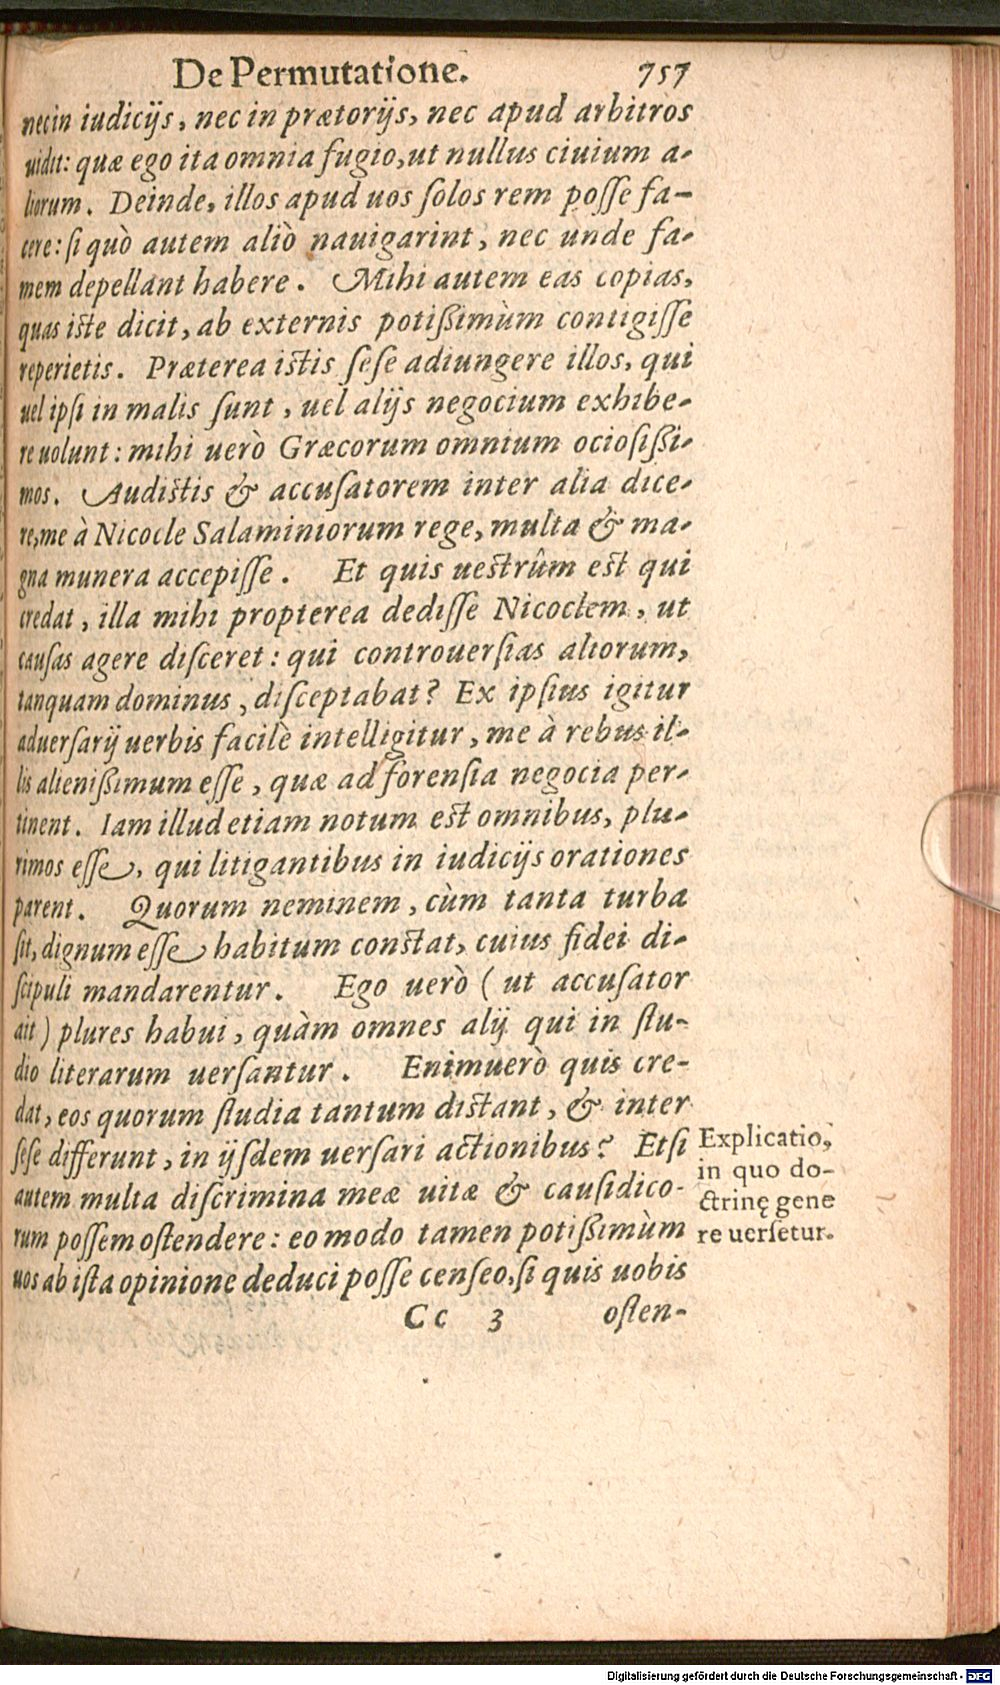 De Permutatione. 757
nec in iudicijs, nec in prætorijs, nec apud arbitros
uidit: quæ ego ita omnia fugio, ut nullus ciuium a-
liorum. Deinde, illos apud uos ſolos rem poſſe fa-
cere: ſi quò autem aliò nauigarint, nec unde fa-
mem depellant habere. Mihi autem eas copias,
quas iſte dicit, ab externis potißimùm contigiſſe
reperietis. Præterea iſtis ſeſe adiungere illos, qui
uel ipſi in malis ſunt, uel alijs negocium exhibe-
re uolunt: mihi uerò Græcorum omnium ocioſißi-
mos. Audiſtis & accuſatorem inter alia dice-
re, me à Nicocle Salaminiorum rege, multa & ma-
gna munera accepiſſe. Et quis ueſtrûm eſt qui
credat, illa mihi propterea dediſſe Nicoclem, ut
cauſas agere diſceret: qui controuerſias aliorum,
tanquam dominus, diſceptabat? Ex ipſius igitur
aduerſarij uerbis facilè intelligitur, me à rebus il-
lis alienißimum eſſe, quæ ad forenſia negocia per-
tinent. Iam illud etiam notum eſt omnibus, plu-
rimos eſſe, qui litigantibus in iudicijs orationes
parent. Quorum neminem, cùm tanta turba
ſit, dignum eſſe habitum conſtat, cuius fidei di-
ſcipuli mandarentur. Ego uerò (ut accuſator
ait) plures habui, quàm omnes alij qui in ſtu-
dio literarum uerſantur. Enimuerò quis cre-
dat, eos quorum ſtudia tantum diſtant, & inter
ſeſe differunt, in ijſdem uerſari actionibus? Etſi
autem multa diſcrimina meæ uitæ & cauſidico-
rum poſſem oſtendere: eo modo tamen potißimùm
uos ab iſta opinione deduci poſſe cenſeo, ſi quis uobis
Cc 3 oſten-
Explicatio,
in quo do-
ctrinę gene
re uerſetur.
Digitalisierung gefördert durch die Deutsche Forschungsgemeinschaft - DFG